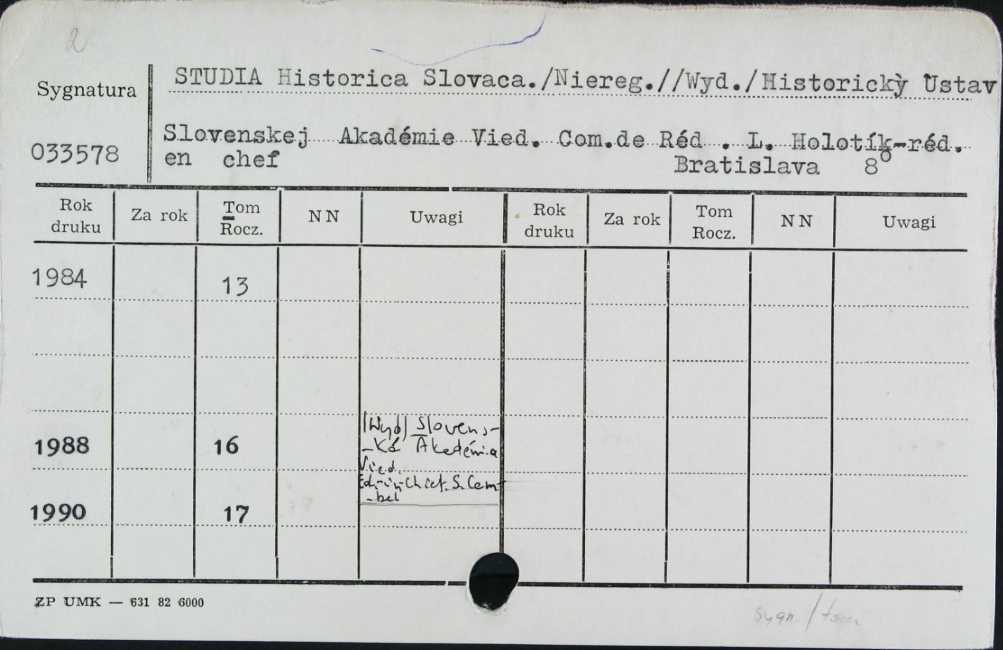 2
Sygnatura
STUDIA Historica Slovaca./Niereg.//Wyd./Historickỳ Ustav
033578
Slovenskej Akadémie Vied. Com.de Réd . L. Holotík-réd.
en chef Bratislava 8°
Rok druku Za rok Tom Rocz. NN Uwagi Rok druku Za rok Tom Rocz. NN Uwagi
1984 13
1988 16
/Wyd/ Slovens-
-ká Akadémia
Vied.
Ed.-in-chief. S. Cam-
-bel
1990 17
ZP UMK — 631 82 6000
sygn. /